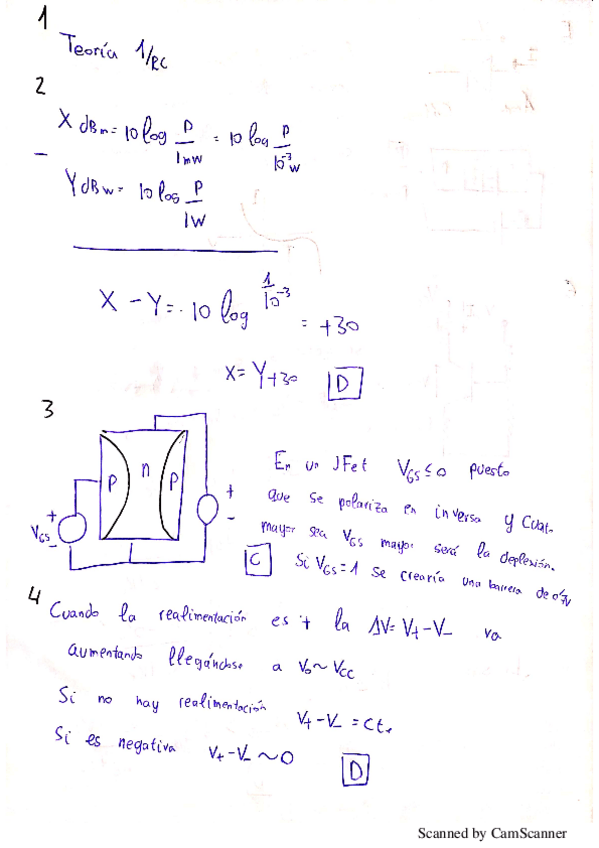 1
Teoría 1/RC
2
X dBm = 10 log P/1mW = 10 log P/10^-3 W
-
Y dBw = 10 log P/1W
X - Y = 10 log 1/10^-3 = +30
X = Y+30 D
3
P n P
+ - VGS
+ -
En un JFet VGS ≤ 0 puesto
que se polariza en inversa y cuan
mayor sea VGS mayor será la deplexión.
C Si VGS = 1 se crearía una barrera de 0'7V
4
Cuando la realimentación es + la ΔV = V+ - V- va
aumentando llegándose a Vo ~ Vcc
Si no hay realimentación V+ - V- = Ct.
Si es negativa V+ - V- ~ 0 D
Scanned by CamScanner